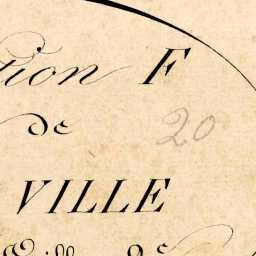 tion F
de
20
VILLE